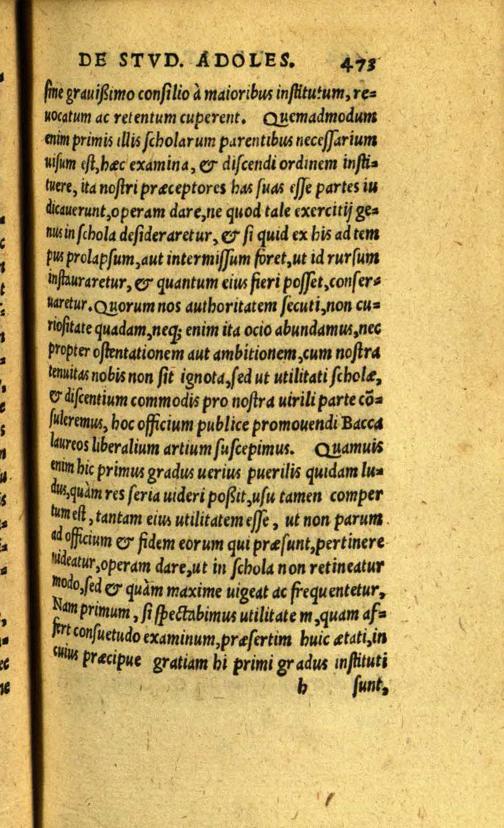 DE STVD. ADOLES. 473
sine grauißimo consilio à maioribus institutum, re=
uocatum ac retentum cuperent. Quemadmodum
enim primis illis scholarum parentibus necessarium
uisum est, hæc examina, & discendi ordinem insti=
tuere, ita nostri præceptores has suas esse partes iu
dicauerunt, operam dare, ne quod tale exercitij ge=
nus in schola desideraretur, & si quid ex his ad tem
pus prolapsum, aut intermissum foret, ut id rursum
instauraretur, & quantum eius fieri posset, conser=
uaretur. Quorum nos authoritatem secuti, non cu=
riositate quadam, neq; enim ita ocio abundamus, nec
propter ostentationem aut ambitionem, cum nostra
tenuitas nobis non sit ignota, sed ut utilitati scholæ,
& discentium commodis pro nostra uirili parte cō=
suleremus, hoc officium publice promouendi Bacca
laureos liberalium artium suscepimus. Quamuis
enim hic primus gradus uerius puerilis quidam lu=
dus, quàm res seria uideri poßit, usu tamen comper
tum est, tantam eius utilitatem esse, ut non parum
ad officium & fidem eorum qui præsunt, pertinere
uideatur, operam dare, ut in schola non retineatur
modo, sed & quàm maxime uigeat ac frequentetur,
Nam primum, si spectabimus utilitatem, quam af=
fert consuetudo examinum, præsertim huic ætati, in
cuius præcipue gratiam hi primi gradus instituti
h sunt,